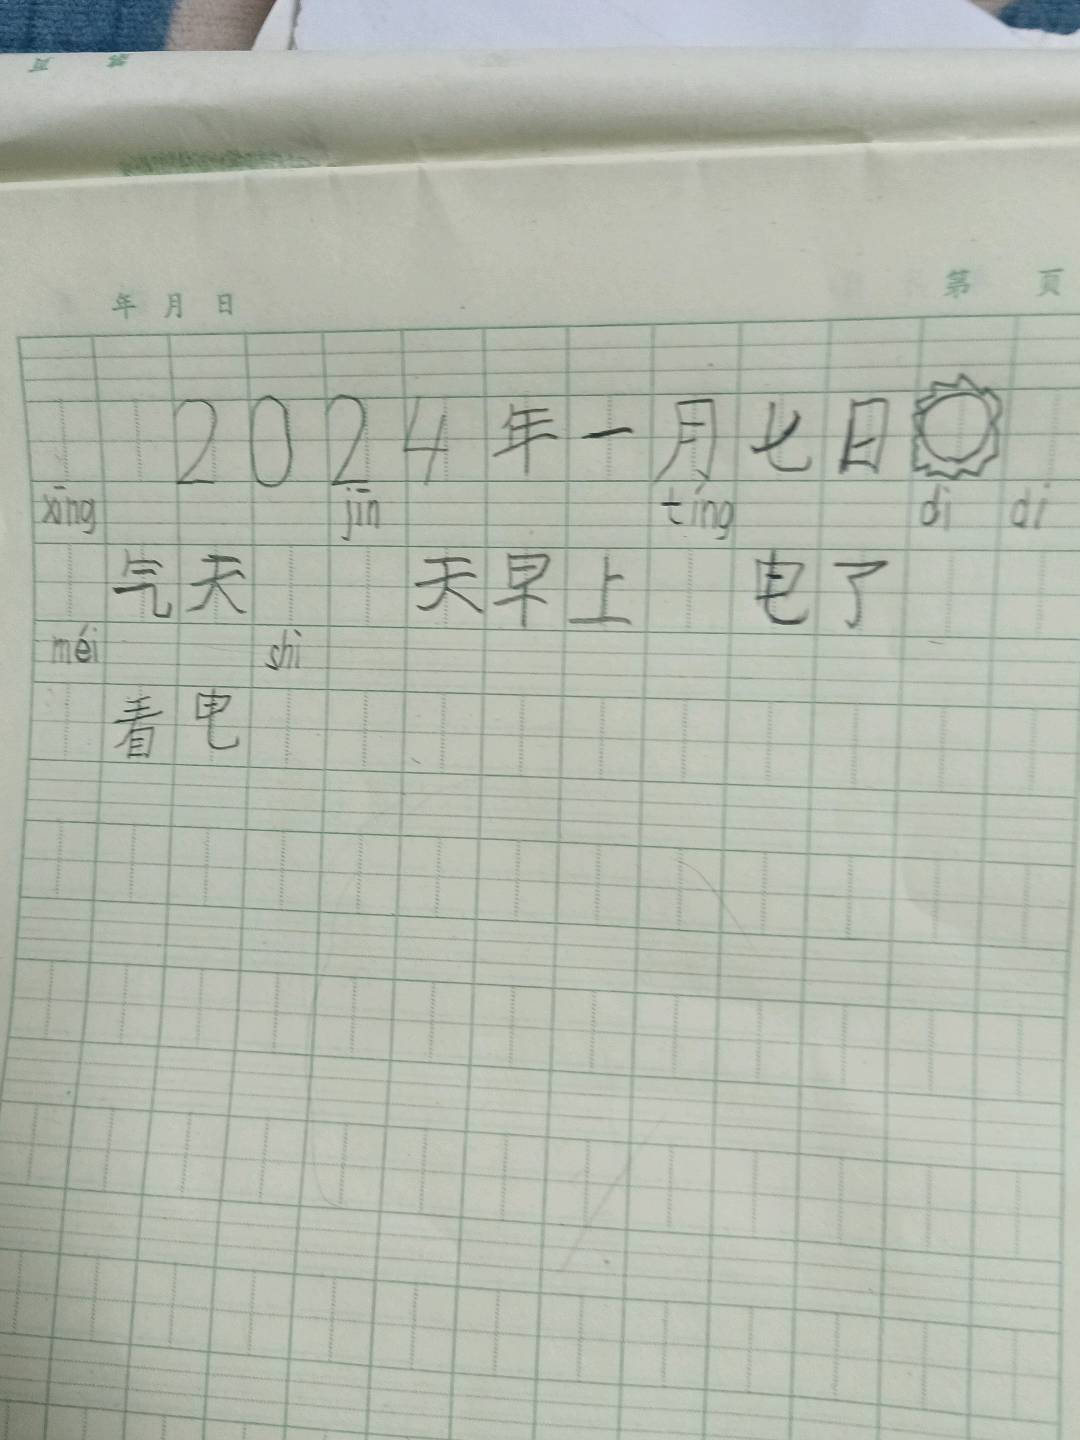 年 月 日 第 页
2024年一月七日
xīng jīn tíng dì di
气天 天早上 电了
méi shì
看电